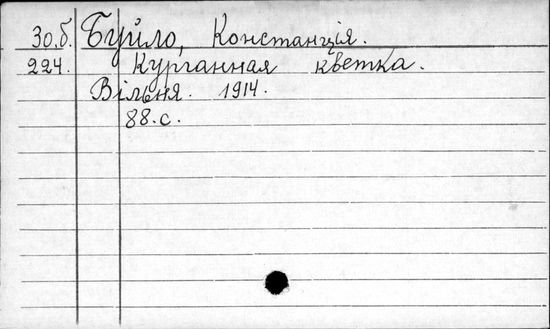 30.б. Буйло, Констанція.
224. Курганная кветка.
Вільня. 1914.
88.с.